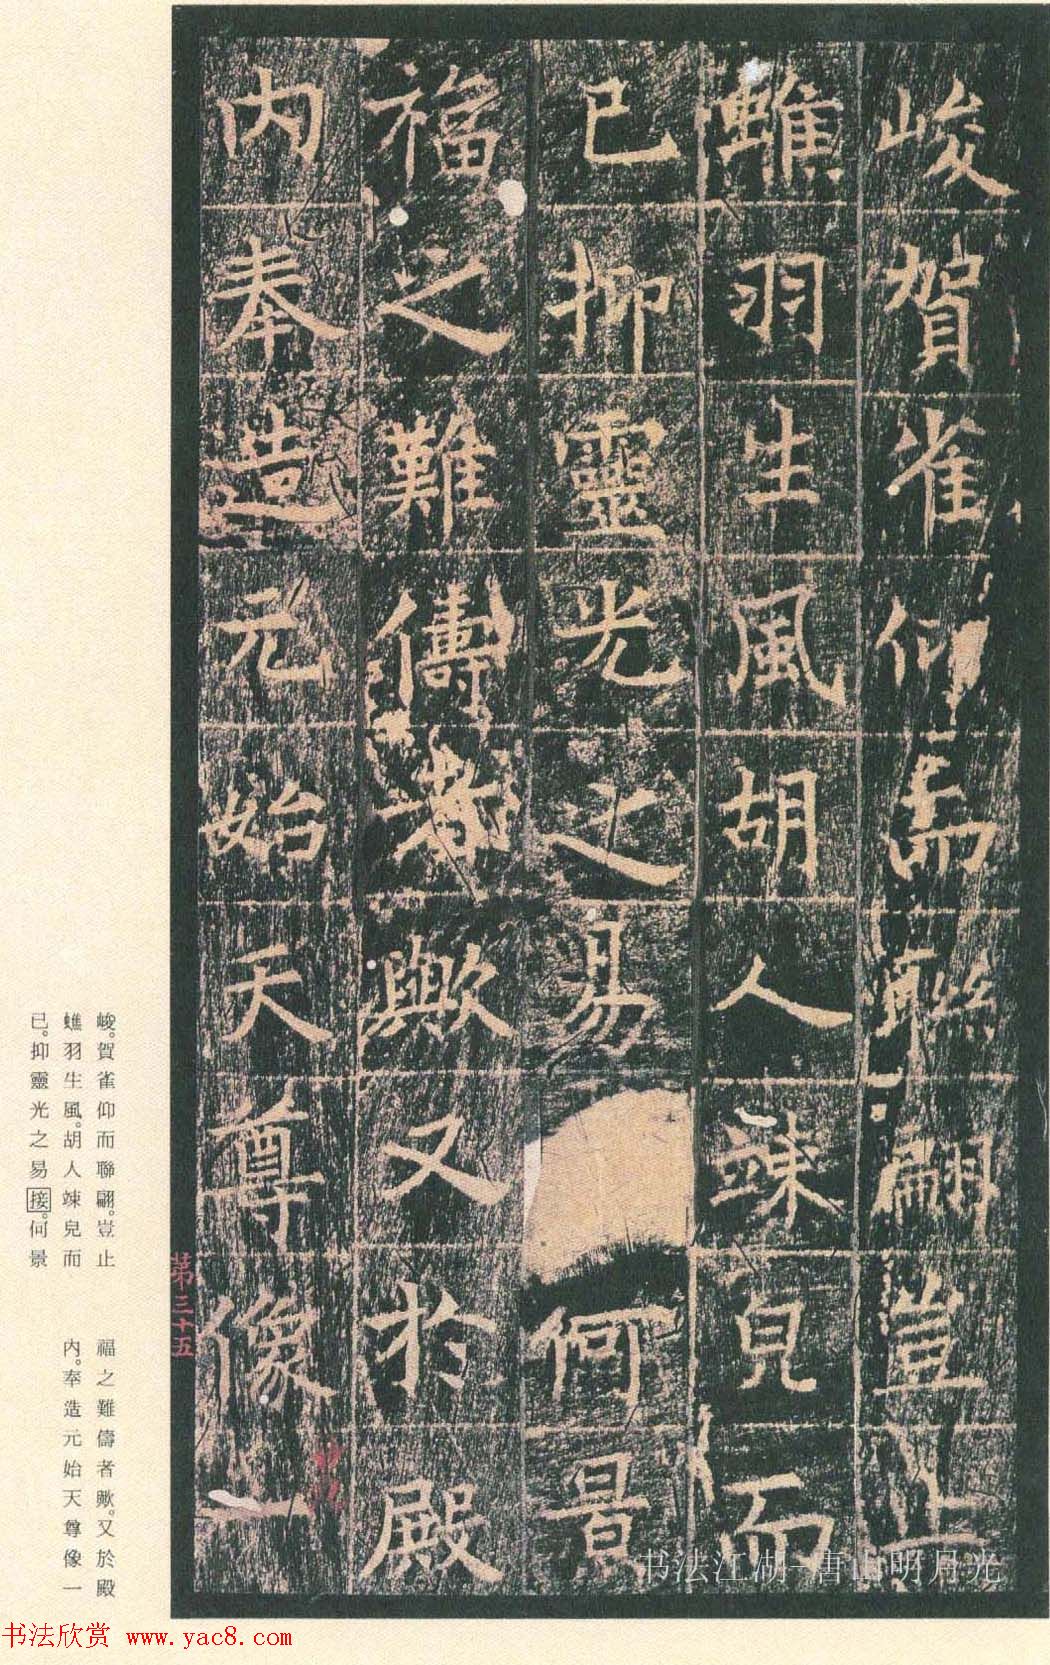 峻賀雀仰而聯翩豈止
蟭羽生風胡人竦皃而
已抑靈光之易何景
福之難儔者歟又於殿
内奉造元始天尊像一
峻。賀雀仰而聯翩。豈止
蟭羽生風。胡人竦皃而
已。抑靈光之易接。何景
福之難儔者歟。又於殿
内。奉造元始天尊像一
第三十五
书法江湖-唐山明月光
书法欣赏 www.yac8.com